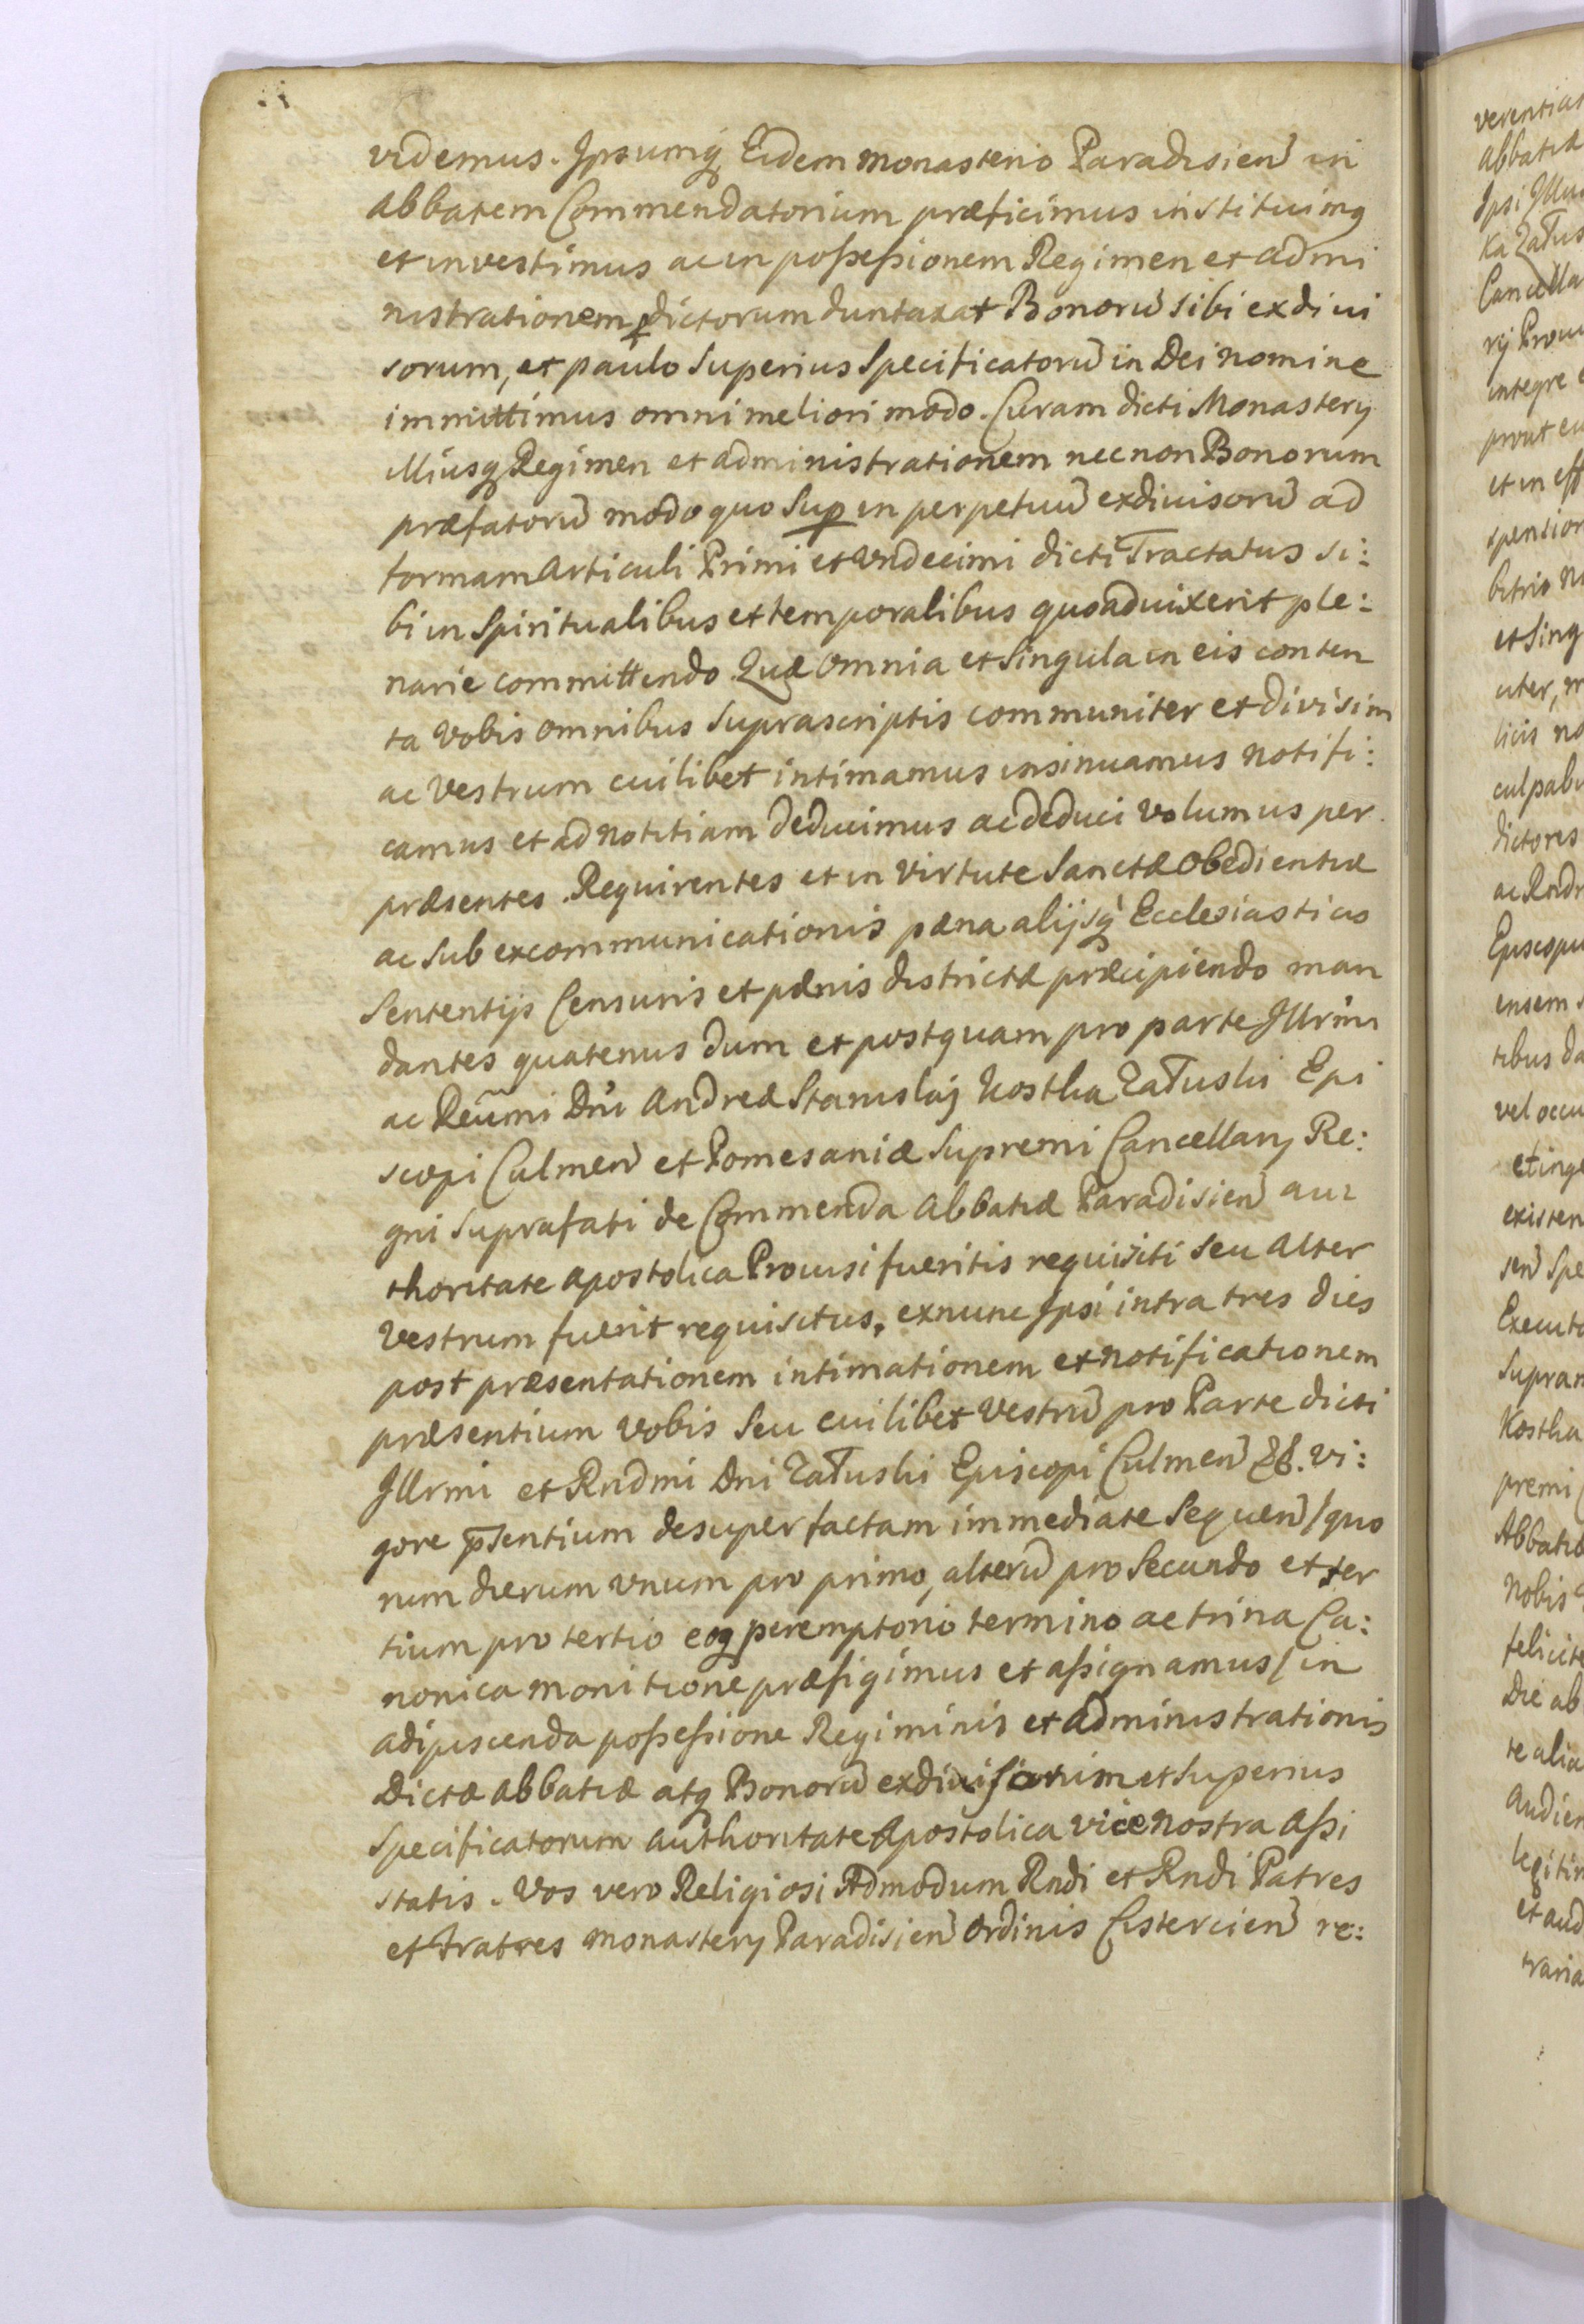 videmus. Ipsumq́ Eidem monasterio Paradisień in
abbatem Commendatorium præficimus instituimq
et investimus ac in possessionem Regimen et admi
nistrationem p̱dictorum duntaxat Bonorū sibi exdivi
sorum, et paulo superius specificatorū in Dei nomine
immittimus omni meliori modo. Curam dicti Monastery
illiusq Regimen et administrationem nec non Bonorum
præfatorū modo quo sup̱ in perpetuū exdiuisorū ad
formam Articuli Primi et Vndecimi dicti Tractatus si:
bi in Spiritualibus et temporalibus quoad vixerit ple:
narie committendo. Quæ omnia et singula in eis conten
ta Vobis omnibus suprascriptis communiter et divisim
ac Vestrum cuilibet intimamus insinuamus notifi:
camus et ad notitiam deducimus ac deduci volumus per
præsentes. Requirentes et in virtute Sanctæ Obedientiæ
ac sub excommunicationis pæna alijsq́ Ecclesiasticis
Sententijs Censuris et pænis districtæ præcipiendo man
dantes quatenus dum et postquam pro parte Illrmi
ac Reūmi Dni Andreæ Stanislaj Kostka Załuski Epi
scopi Culmeń et Pomesaniæ Supremi Cancellarij Re:
gni suprafati de Commenda Abbatiæ Paradisień au:
thoritate apostolica Provisi fueritis requisiti seu alter
Vestrum fuerit requisitus, exnunc Ipsi intra tres dies
post præsentationem intimationem et notificationem
præsentium Vobis seu cuilibet Vestrū pro Parte dicti
Illrmi et Rndmi Dni Załuski Episcopi Culmeń &. vi:
gore p̄sentium desuper factam immediate sequeń / quo
rum dierum vnum pro primo, alterū pro secundo et ter
tium pro tertio eoq peremptorio termino ac trina Ca:
nonica monitione præfigimus et assignamus / in
adipiscenda possessione Regiminis et administrationis
Dictæ abbatiæ atq Bonorū exdiuisorum et superius
specificatorum authoritate Apostolica vice nostra assi
statis. Vos vero Religiosi Admodum Rndi et Rndi Patres
et Fratres monastery Paradisień Ordinis Cistercień re:
verentia
abbatiæ
Ipsi
Cancella
rij
integre
et in
et sing
dictores
tibus
vel occu
existen
Kostka
premi
Abbatiæ
nobis
Die ab
te alia
et aud
traria